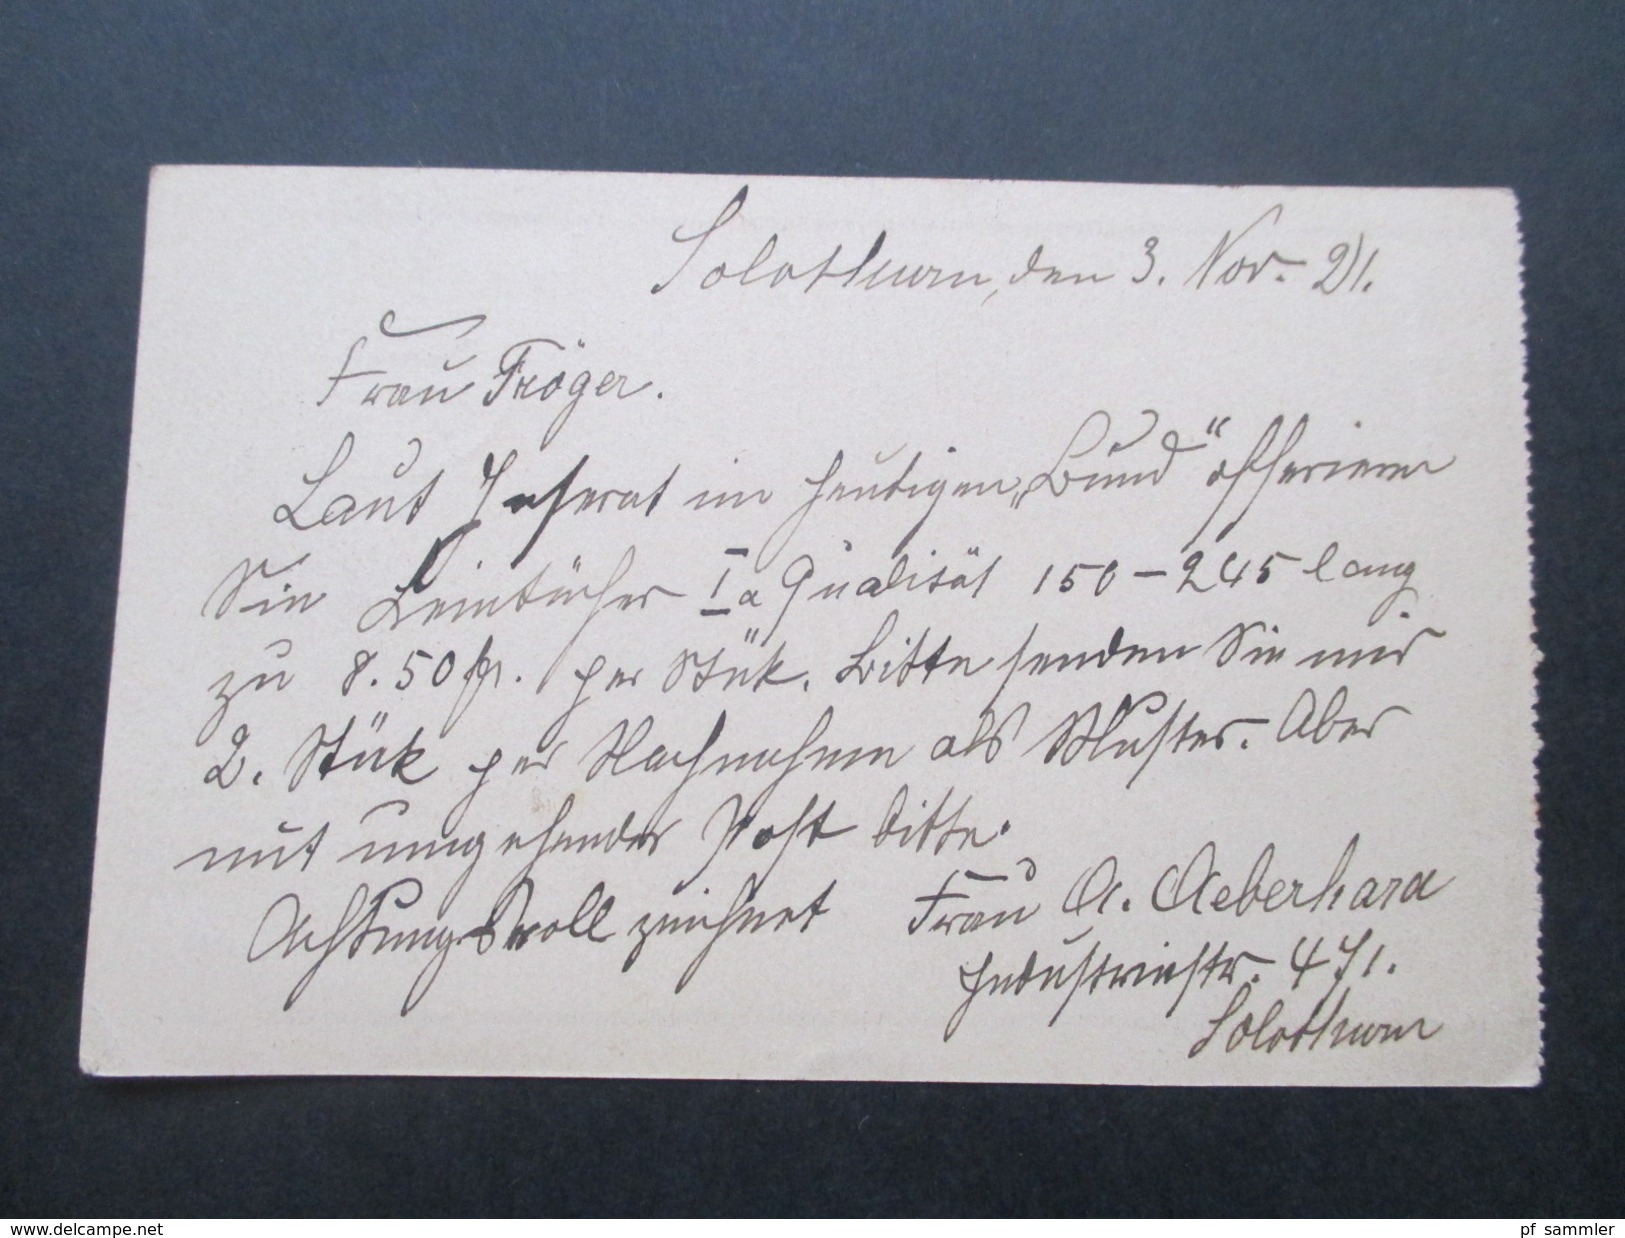 Solothurn, den 3. Nov. 21.
Frau Tröger.
Laut Inserat im heutigen „Bund“ offerieren
Sie Leintücher Ia Qualität 150–245 lang
zu 8.50 fr. per Stük. Bitte senden Sie mir
2. Stük per Nachnahme als Muster. Aber
mit umgehender Post bitte.
Achtungsvoll zeichnet Frau A. Aeberhard
Industriestr. 471.
Solothurn
www.delcampe.net
pf_sammler